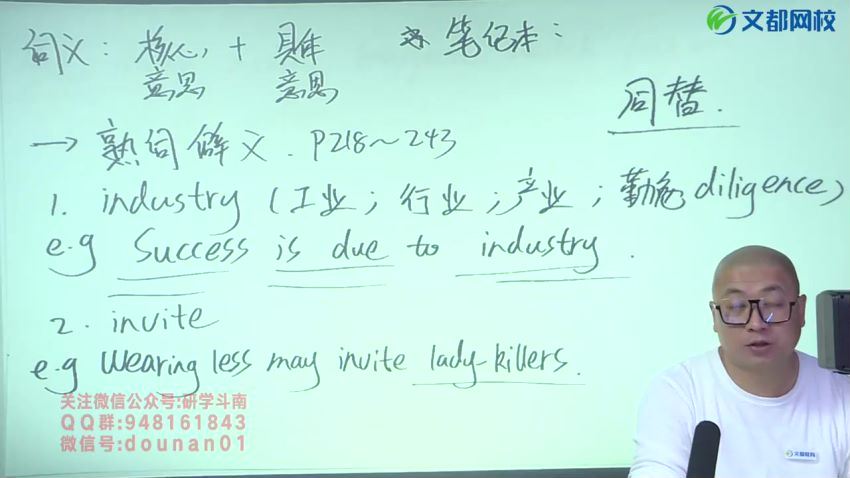 文都网校
词义: 核心 + 具体 ※ 笔记本:
意思 意思
同替.
→ 熟词僻义. P218~243
1. industry (工业; 行业; 产业; 勤勉 diligence)
e.g Success is due to industry.
2. invite
e.g Wearing less may invite lady-killers.
关注微信公众号:研学斗南
QQ群:948161843
微信号:dounan01
文都教育